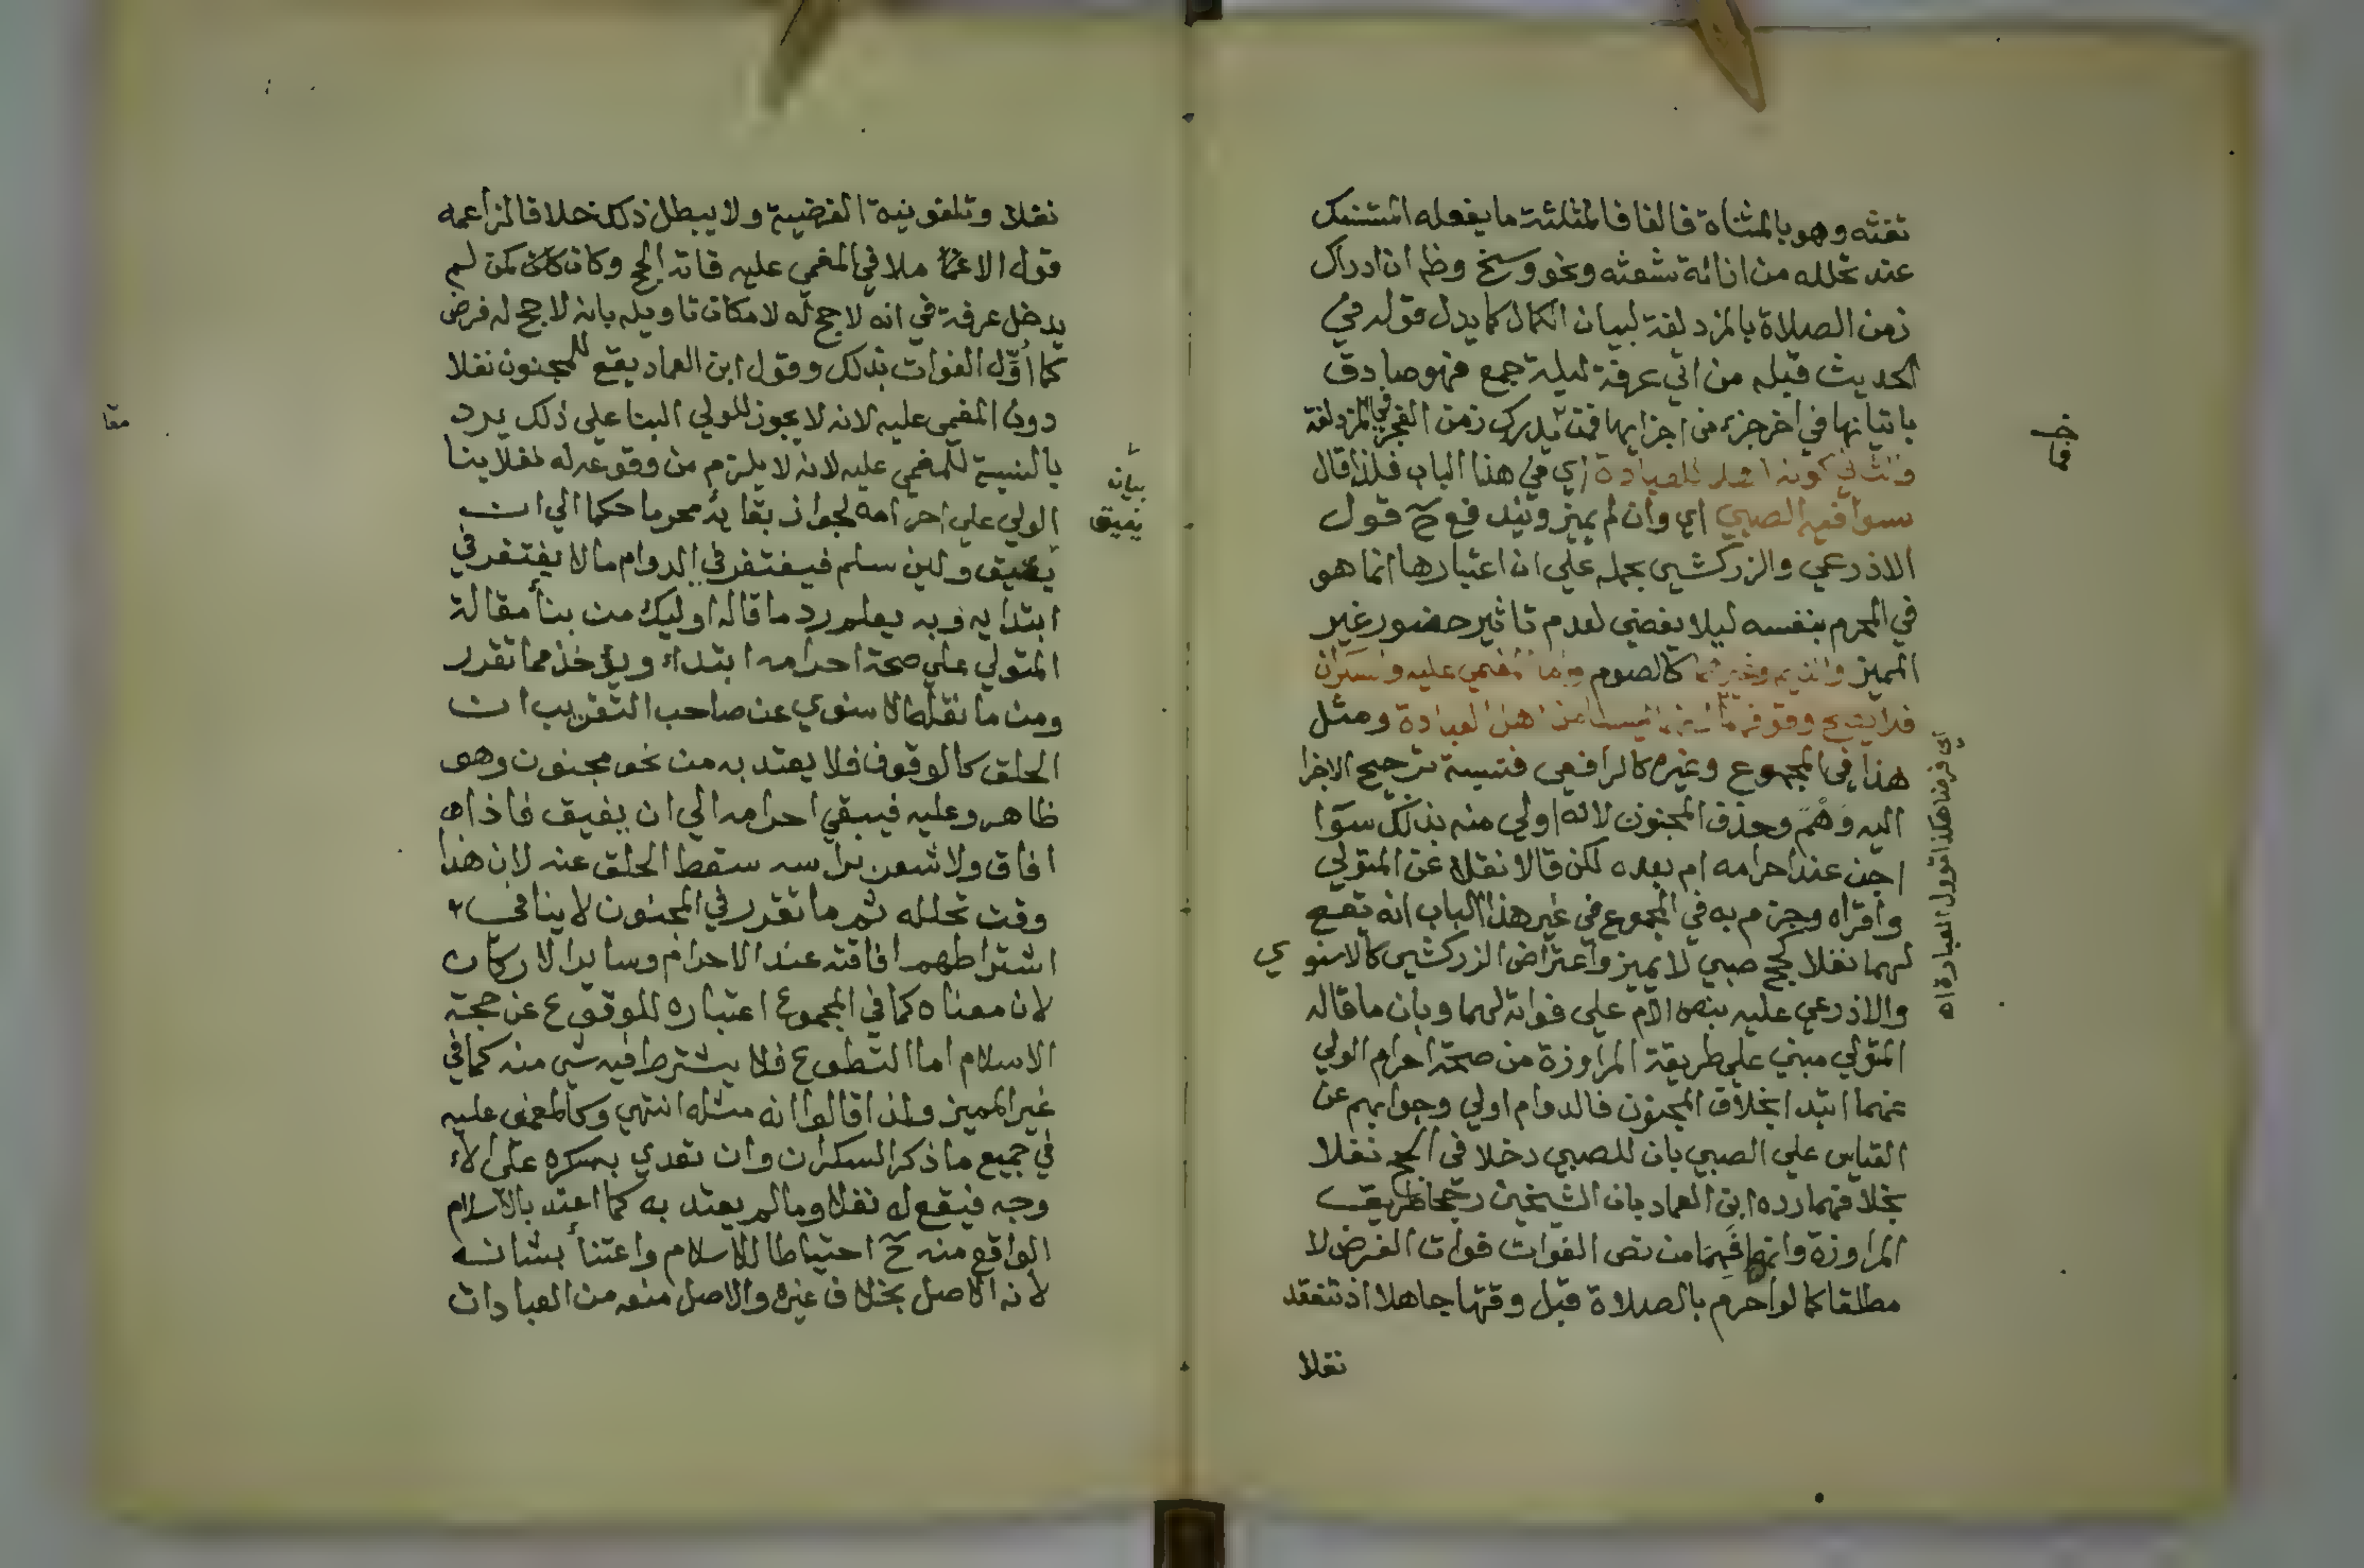 تفثه وهو بالمثناة فالفا فالمثلثة ما يفعله المتنسك
عند تحلله من ازالة شعثه ونحو وسخ وظم ان ادراك
زمن الصلاة بالمزدلفة لبيان الكمال كما يدل قوله في
الحديث قبله من اتي عرفة ليلة جمع فهو صادق
باتيانها في اخر جزء من اجزايها فمتي يدرك زمن الفجر في المزدلفة
والثاني كونه اهلا للعبادة اي في هذا الباب فلذا قال
سوا فيه الصبي اي وان لم يميز ويندفع ح قول
الاذرعي والزركشي يحمله علي ان اعتبارها انما هو
في المحرم بنفسه ليلا يفضي لعدم تاثير حضور غير
المميز والنايم وغيرهما كالصوم واما المغمي عليه والسكران
فلا يصح وقوفهما لانهما ليسا من اهل العبادة ومثل
هذا في المجموع وغيره كالرافعي فنسبة ترجيح الاجزا
اليه وَهْمٌ وحذف المجنون لانه اولي منه بذلك سوا
اجن عند احرامه ام بعده لكن قالا نقلا عن المتولي
واقراه وجزم به في المجموع في غير هذا الباب انه يقع
لهما نفلا كحج صبي لا يميز واعتراض الزركشي كالاسنوي
والاذرعي عليه بنص الام علي فواته لهما وبان ما قاله
المتولي مبني علي طريقة المراوزة من صحة احرام الولي
عنهما ابتدا بخلاف المجنون فالدوام اولي وجوابهم عن
القياس علي الصبي بان للصبي دخلا في الحج نفلا
بخلافهما رده ابن العماد بان الشيخين رجحا طريقة
المراوزة وانهما فهما من نص الفوات فوات الفرض لا
مطلقا كما لو احرم بالصلاة قبل وقتها جاهلا اذ تنعقد
نفلا
اي فرضنا هكذا تؤول العبارة اه
نفلا وتلغو نية الفرضية ولا يبطل ذلك خلافا لزاعمه
قوله الاغما ملا في المغمي عليه فاته الحج وكان كمن لم
يدخل عرفة في انه لا حج له لامكان تاويله بانه لا حج له فرض
كما أوّل الفوات بذلك وقول ابن العماد يقع للمجنون نفلا
دون المغمي عليه لانه لا يجوز للولي البنا علي ذلك يرد
بالنسبة للمغمي عليه لانه لا يلزم من وقوعه له نفلا بنا
الولي علي احرامه لجواز بقايه محرما حكما الي ان
يفيق ولين سلم فيغتفر في الدوام ما لا يغتفر في
ابتدايه وبه يعلم رد ما قاله اوليك من بنأ مقالة
المتولي علي صحة احرامه ابتداء ويؤخذ مما تقرر
ومن ما نقله الاسنوي عن صاحب التقريب ان
الحلق كالوقوف فلا يعتد به من نحو مجنون وهو
ظاهر وعليه فيبقي احرامه الي ان يفيق فاذا
افاق ولا شعر براسه سقط الحلق عنه لان هذا
وقت تحلله ثم ما تقرر في المجنون لا ينافي
اشتراطهم افاقته عند الاحرام وساير الاركان
لان معناه كما في المجموع اعتباره للوقوع عن حجة
الاسلام اما التطوع فلا يشترط فيه شي منه كما في
غير المميز ولذا قالوا انه مثله انتهي وكالمغمي عليه
في جميع ما ذكر السكران وان تعدي بسكره علي الا
وجه فيقع له نفلا وما لم يعتد به كما اعتد بالاسلام
الواقع منه ح احتياطا للاسلام واعتنأ بشانه
لانه الاصل بخلاف غيره والاصل منعه من العبادات
بيان
يفيق